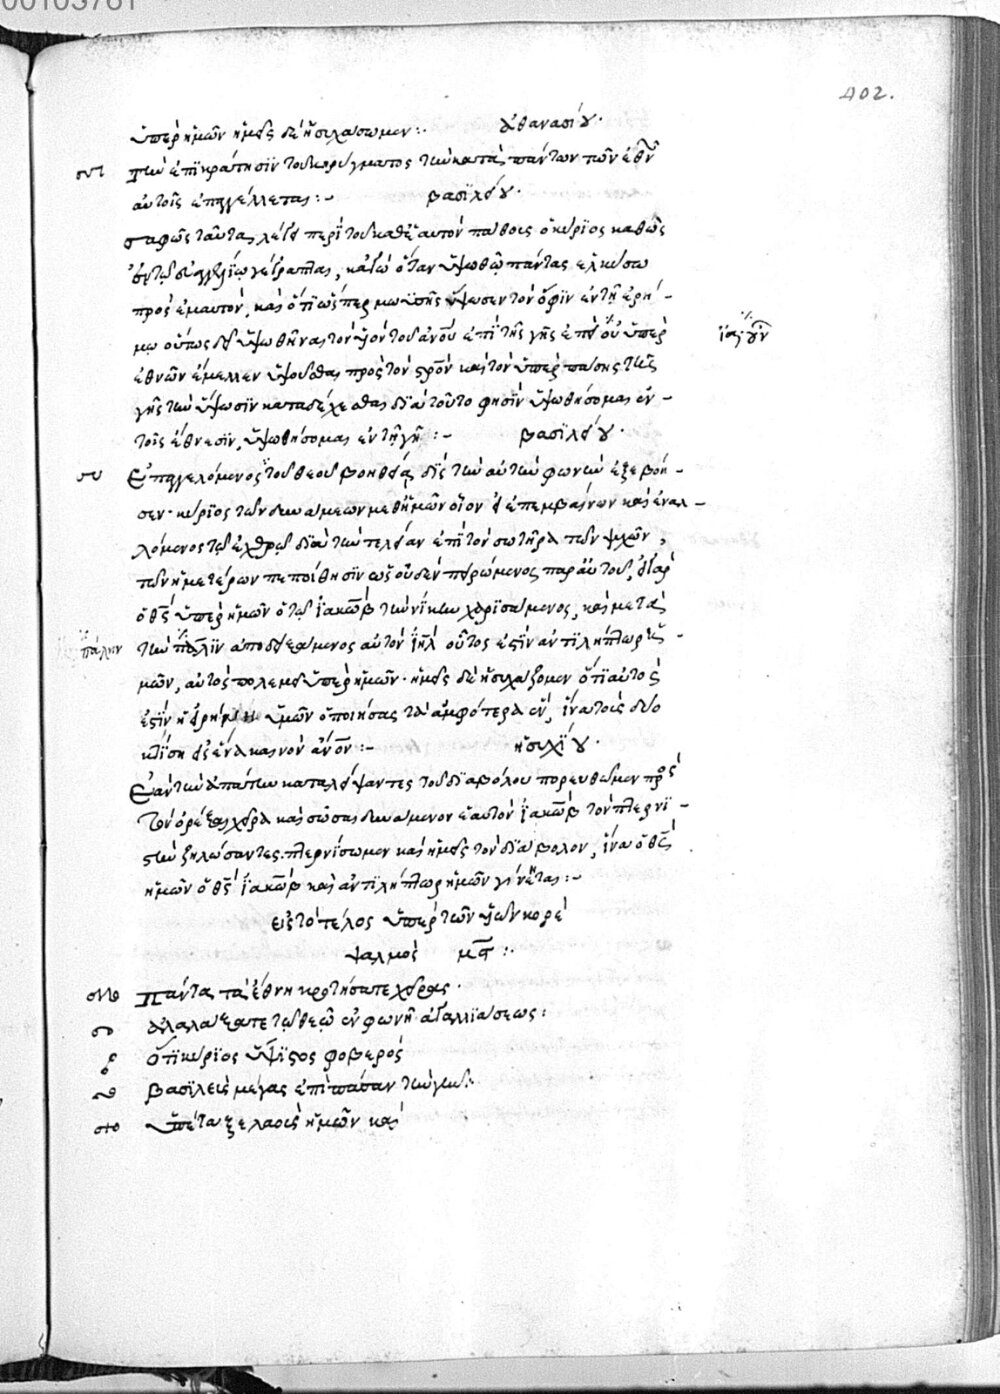 00103781
402.
ὑπὲρ ἡμῶν ἡμεῖς δὲ ἡσυχάσωμεν :· ἀθανασίου ·
τὴν ἐπικράτησιν τοῦ κηρύγματος τὴν κατὰ πάντων τῶν ἐθνῶν
αὐτοῖς ἐπαγγέλλεται :- βασιλείου ·
σαφῶς ταῦτα λέγει περὶ τοῦ καθ' ἑαυτὸν πάθους ὁ κύριος καθὼς
ἐν τῷ εὐαγγελίῳ γέγραπται, κἀγὼ ὅταν ὑψωθῶ πάντας ἑλκύσω
πρὸς ἐμαυτόν, καὶ ὅτι ὥσπερ μωϋσῆς ὕψωσεν τὸν ὄφιν ἐν τῇ ἐρή-
μῳ οὕτως δεῖ ὑψωθῆναι τὸν υἱὸν τοῦ ανου ἐπὶ τῆς γῆς ἐπεὶ οὖν ὑπὲρ
ἐθνῶν ἔμελλεν ὑψοῦσθαι πρὸς τὸν στρον καὶ τὸν ὑπὲρ πάσης τῆς
γῆς τὴν ὕψωσιν καταδέχεσθαι διὰ τοῦτο φησὶν ὑψωθήσομαι ἐν
τοῖς ἔθνεσιν, ὑψωθήσομαι ἐν τῇ γῇ :- βασιλείου ·
Ἐπαγγελόμενος τοῦ θεοῦ βοήθεια, δὶς τὴν αὐτὴν φωνὴν ἐξεβόη-
σεν · κύριος τῶν δυνάμεων μεθ' ἡμῶν οἷον ἐπεμβαίνων καὶ ἐναλ-
λόμενος τῷ ἐχθρῷ διὰ τὴν τελείαν ἐπὶ τὸν σωτῆρα τῶν ψχῶν,
τῶν ἡμετέρων πεποίθησιν ὡς οὐδὲν πειρώμενος παρ' αὐτοῦ, εἰ γὰρ
ὁ θς ὑπὲρ ἡμῶν ὁ τῷ ἰακὼβ τὴν νίκην χαρισάμενος, καὶ μετὰ
τὴν πάλιν ἀποδειξάμενος αὐτὸν ιηλ οὗτος ἐστὶν ἀντιλήπτωρ ἡ-
μῶν, αὐτὸς πολεμεῖ ὑπὲρ ἡμῶν · ἡμεῖς δὲ ἡσυχάζομεν ὅτι αὐτὸς
ἐστὶν ἡ εἰρήνη ἡμῶν ὁ ποιήσας τὰ ἀμφότερα ἕν, ἵνα τοὺς δύο
κτίσῃ εἰς ἕνα καινὸν ανον :- ἡσυχίου ·
Ἐὰν τὴν ἀπάτην καταλείψαντες τοῦ διαβόλου πορευθῶμεν πρὸς
τὸν ὀρέξαι χεῖρα καὶ σῶσαι δυνάμενον ἑαυτὸν ἰακὼβ τὸν πτερνι-
στὴν ζηλώσαντες. πτερνίσωμεν καὶ ἡμεῖς τὸν διάβολον, ἵνα ὁ θς
ἡμῶν ὁ θς ἰακὼβ καὶ ἀντιλήπτωρ ἡμῶν γίνεται :-
εἰς τὸ τέλος ὑπὲρ τῶν υἱῶν κορὲ
ψαλμὸς μϛ :·
Πάντα τὰ ἔθνη κροτήσατε χεῖρας ·
ἀλαλάξατε τῷ θεῷ ἐν φωνῇ ἀγαλλιάσεως :
ὅτι κύριος ὕψιστος φοβερὸς
βασιλεὺς μέγας ἐπὶ πᾶσαν τὴν γῆν ·
ὑπέταξε λαοὺς ἡμῶν καὶ
πάλιν